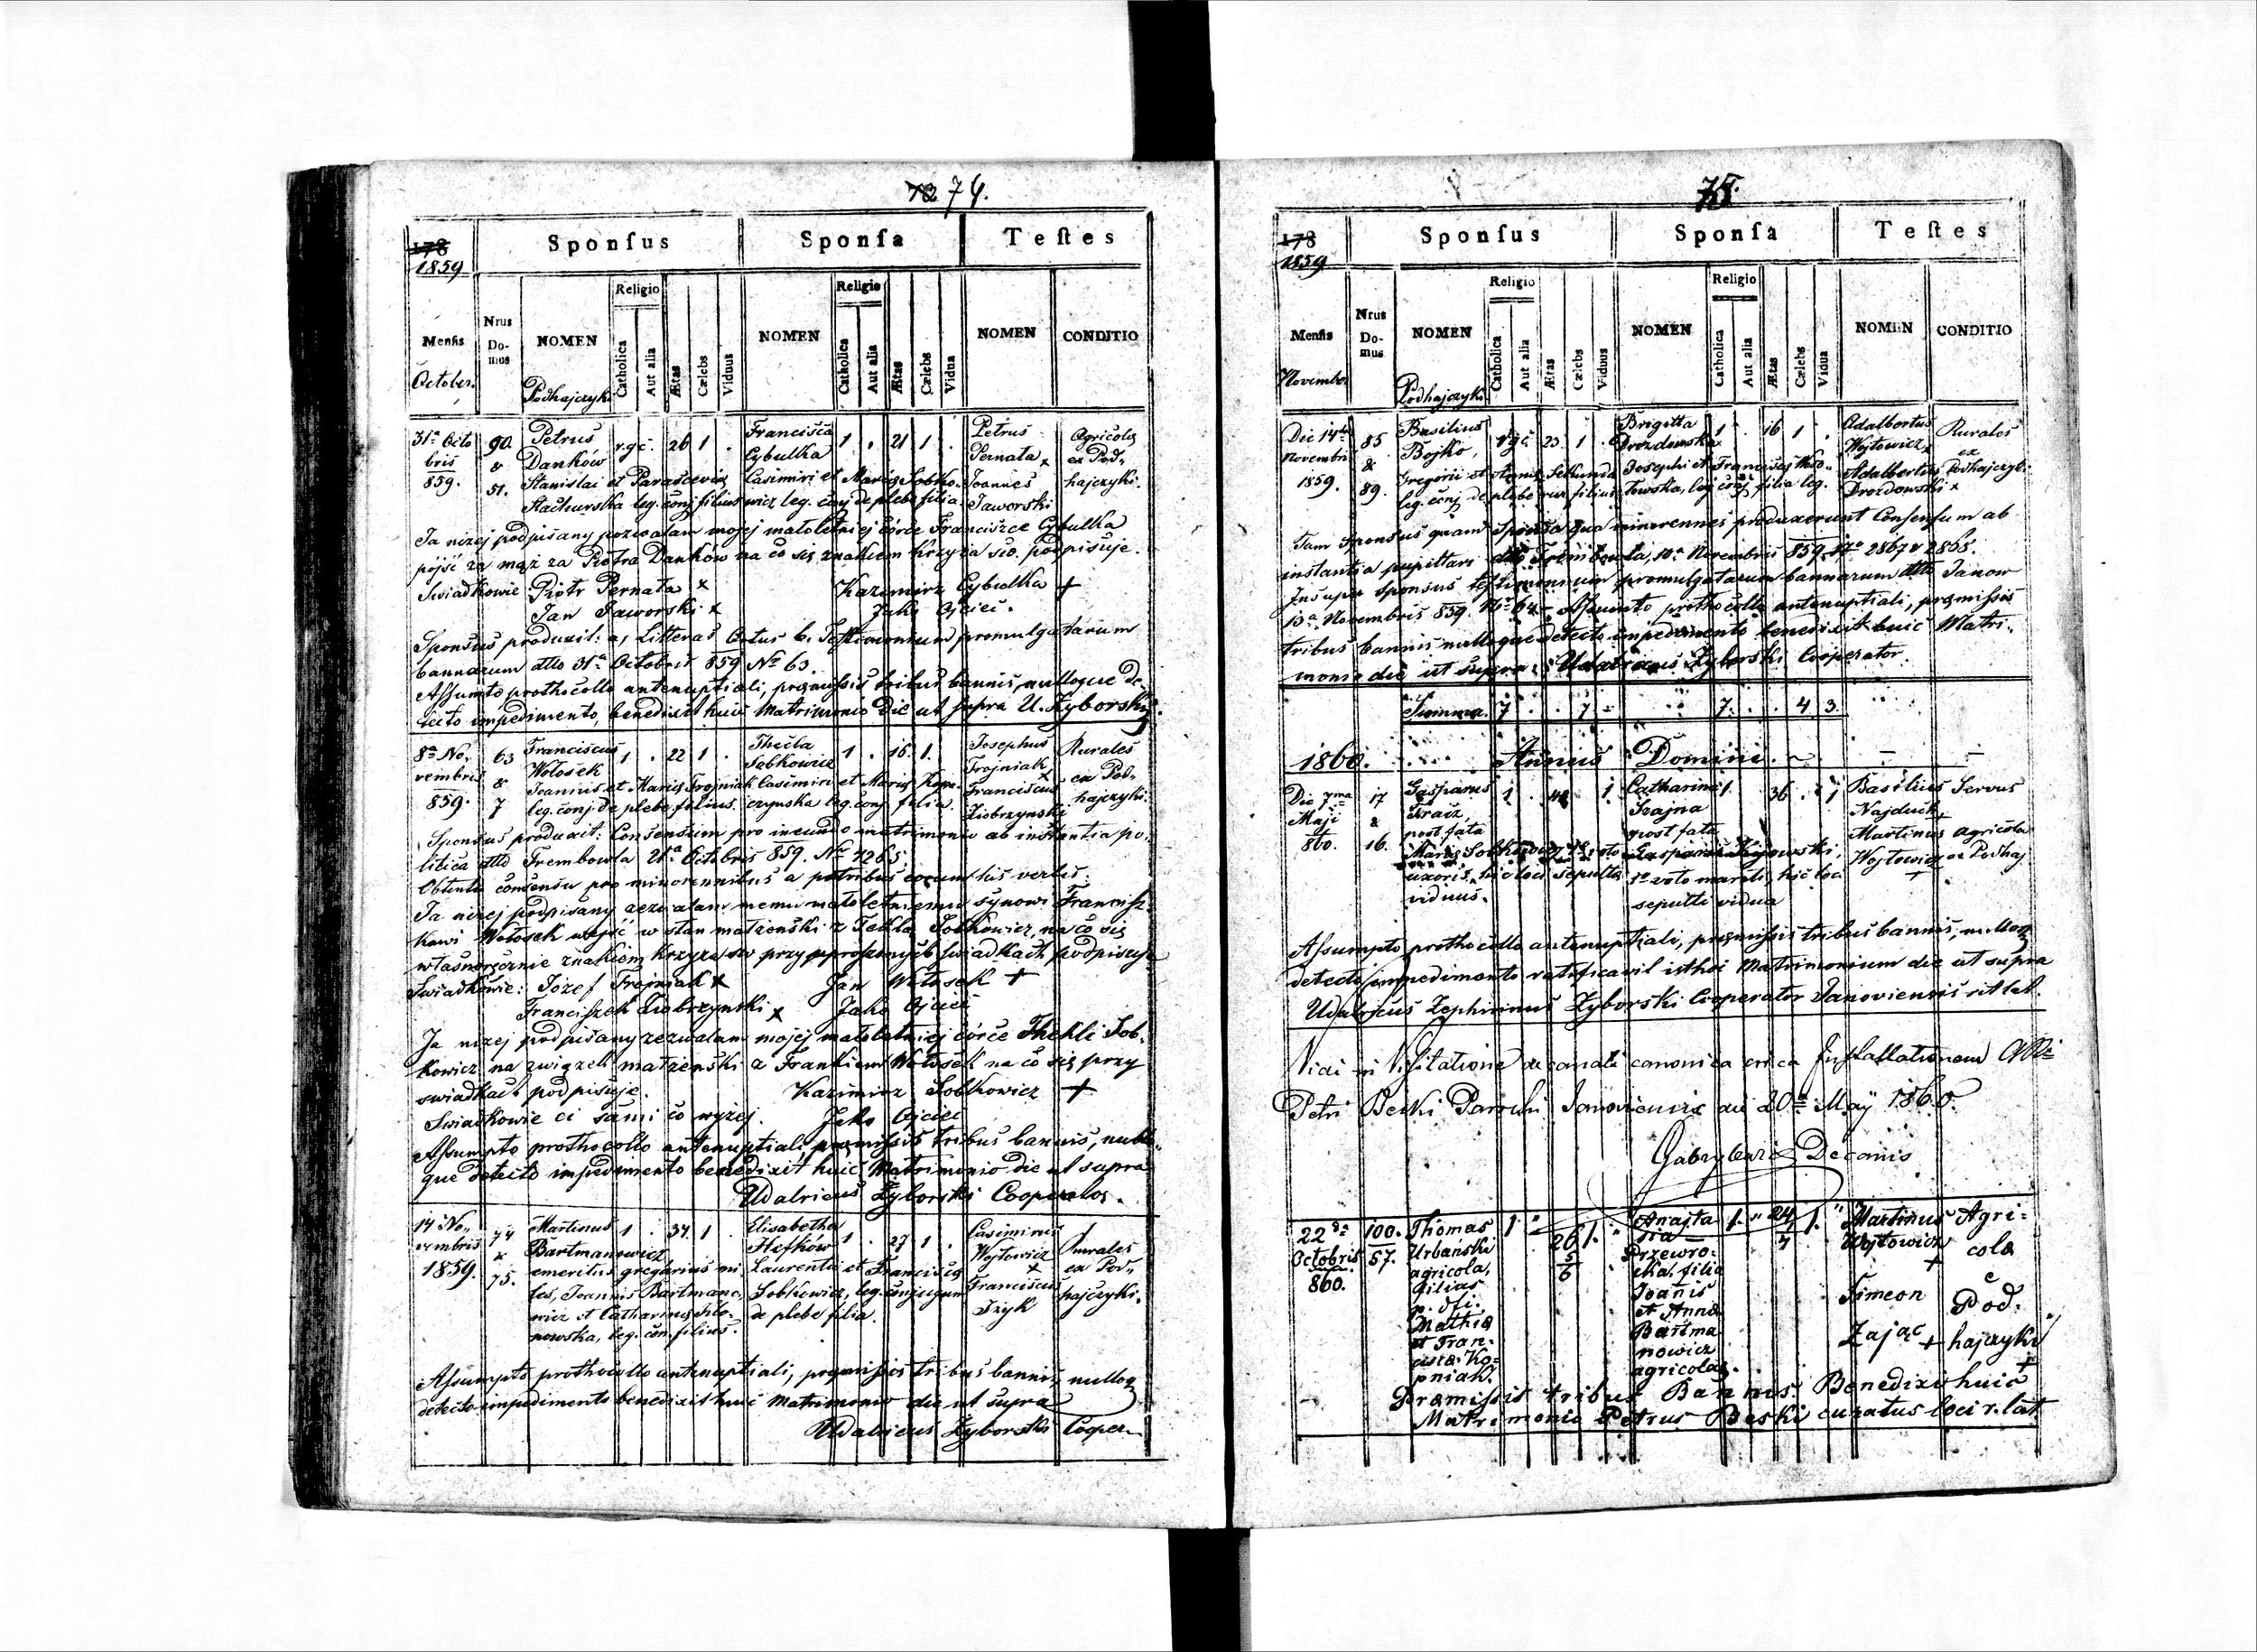 74.
Sponſus Sponſa Teſtes
178
1859
Menſis Nrus Domus NOMEN Religio Catholica Aut alia Ætas Cælebs Viduus NOMEN Religio Catholica Aut alia Ætas Cælebs Vidua NOMEN CONDITIO
October. Podhajczyki
31a Octo 90. Petrus r.gc. 26 1 . Francisca 1 . 21 1 . Petrus Agricolæ
bris & Danków Cybulka Pernata x ex Pod-
859. 51. Stanislai et Parascevia Casimiri et Mariæ Sobko- Joannes hajczyki.
Stachurska leg. conj filius wicz leg. conj de plebe filia. Jaworski
Ja niżej podpisany pozwalam mojej małoletniej córce Franciszce Cybulka
pójść za mąż za Piotra Danków na co się znakiem krzyża św. podpisuje.
Swiadkowie: Piotr Pernata x Kazimierz Cybulka +
Jan Jaworski x Jako Ojciec.
Sponsus produxit: a, Litteras Ortus b, Testimonium promulgatarum
bannarum dtto 31a Octobris 859 No 63.
Assumto prothocollo antenuptiali, præmissis tribus bannis, nulloque de-
tecto impedimento, benedixit huic Matrimonio Die ut supra U. Zyborski.
8a No- 63 Franciscus 1 . 22 1 . Thecla 1 . 16. 1. Josephus Rurales
vembris & Wołosek Sobkowicz Trojniak x ex Pod-
859. 7 Joannis et Mariæ Trojniak Casimiri et Mariæ Franciscus hajczyki
leg. conj. de plebe filius. leg. conj filia. Ziobrzynski
Sponsus produxit: Consensum pro ineundo matrimonio ab instantia po-
litica dtto Trembowla 21a Octobris 859. No 4265.
Obtento consensu pro minorennibus a patribus eorum his verbis:
Ja niżej podpisany zezwalam memu małoletniemu synowi Francisz-
kowi Wołosek wejść w stan małżeński z Teklą Sobkowicz, na co się
własnoręcznie znakiem krzyża św przy uproszonych swiadkach podpisuje
Swiadkowie: Józef Trojniak x Jan Wołosek +
Franciszek Ziobrzynski x Jako Ojciec
Ja niżej podpisany zezwalam mojej małoletniej córce Thekli Sob-
kowicz na związek małżeński z Frankiem Wołosek na co się przy
swiadkach podpisuje. Kazimierz Sobkowicz +
Swiadkowie ci sami co wyżej. Jako Ojciec
Assumpto prothocollo antenuptiali, præmissis tribus bannis, nullo-
que detecto impedimento benedixit huic Matrimonio die ut supra
Udalricus Zyborski Cooperator.
14 No- 74 Martinus 1 . 34. 1 . Elisabetha 1 . 27 1 . Casimirus Rurales
vembris & Bartmanowicz Hefków Wojtowicz + ex Pod-
1859. 75. emeritus gregarius mi Laurentii et Francisca Franciscus hajczyki.
les, Joannis Bartmano- Sobkowicz, leg. conjugum Szyk
wicz et Catharinæ de plebe filia.
leg. con. filius.
Assumpto prothocollo antenuptiali, præmissis tribus bannis, nulloq
detecto impedimento benedixit huic Matrimonio die ut supra
Udalricus Zyborski Cooper.
75.
Sponſus Sponſa Teſtes
178
1859
Menſis Nrus Domus NOMEN Religio Catholica Aut alia Ætas Cælebs Viduus NOMEN Religio Catholica Aut alia Ætas Cælebs Vidua NOMEN CONDITIO
November Podhajczyki
Die 14ta 85 Basilius r.gc 23 1 . Brigitta 1 . 16 1 . Adalbertus Rurales
Novembri & Bojko, Drozdowska Wojtowicz x ex
1859. 89. Gregorii et Josephi et Franciscæ Adalbertus Podhajczyki
leg. conj de plebe filius leg conj filia leg. Drozdowski x
Tam Sponsus quam Sponsa qua minorennes produxerunt Consensum ab
instantia pupillari dtto Trembowla, 10a Novembris 859 No 2867 & 2868.
Insuper Sponsus testimonium promulgatarum bannarum dtto Janow
13a Novembris 859. No 64 – Assumto prothocollo antenuptiali, præmissis
tribus bannis nulloque detecto impedimento benedixit huic Matri-
monio die ut supra: Udalricus Zyborski Cooperator.
Summa. 7 . . 7 – 7. . . 4 3.
1860. Annus Domini.
Die 7ma 17 Gasparus 1 . 48 . 1 Catharina 1. . 36 . 1 Basilius Servus
Maji & Szajna Najduch,
860. 16. post fata post fata Martinus agricola
Mariæ Sobkowicz Wojtowicz ex Podhaj
uxoris, hic loci sepulta 1o voto mariti, hic loci +
viduus. sepulti vidua
Assumpto prothocollo antenuptiali, præmissis tribus bannis, nulloq
detecto impedimento ratificavit isthoc Matrimonium die ut supra
Udalricus Zephirinus Zyborski Cooperator Janoviensis rit lat.
Vidi in Visitatione decanali canonica erica Installationem
Petri Beski Parochi Janoviensis die 20a May 1860.
Decanus
22da 100. Thomas 1 " 26 1. " Anasta 1. " 24 1. " Martinus Agri-
Octobris 57. Urbański 5 sia 7 Wojtowicz cola
860. agricola, 6 Przewro- + e
filius cka. filia Simeon Pod-
p. dfi. Joanis Zając + hajczyki
Mathia et Anna +
et Fran- Bartma
cisca Ko- nowicz
pniak. agricolæ.
Præmissis tribus Bannis Benedixi huic
Matrimonio Petrus Beski curatus loci r. lat